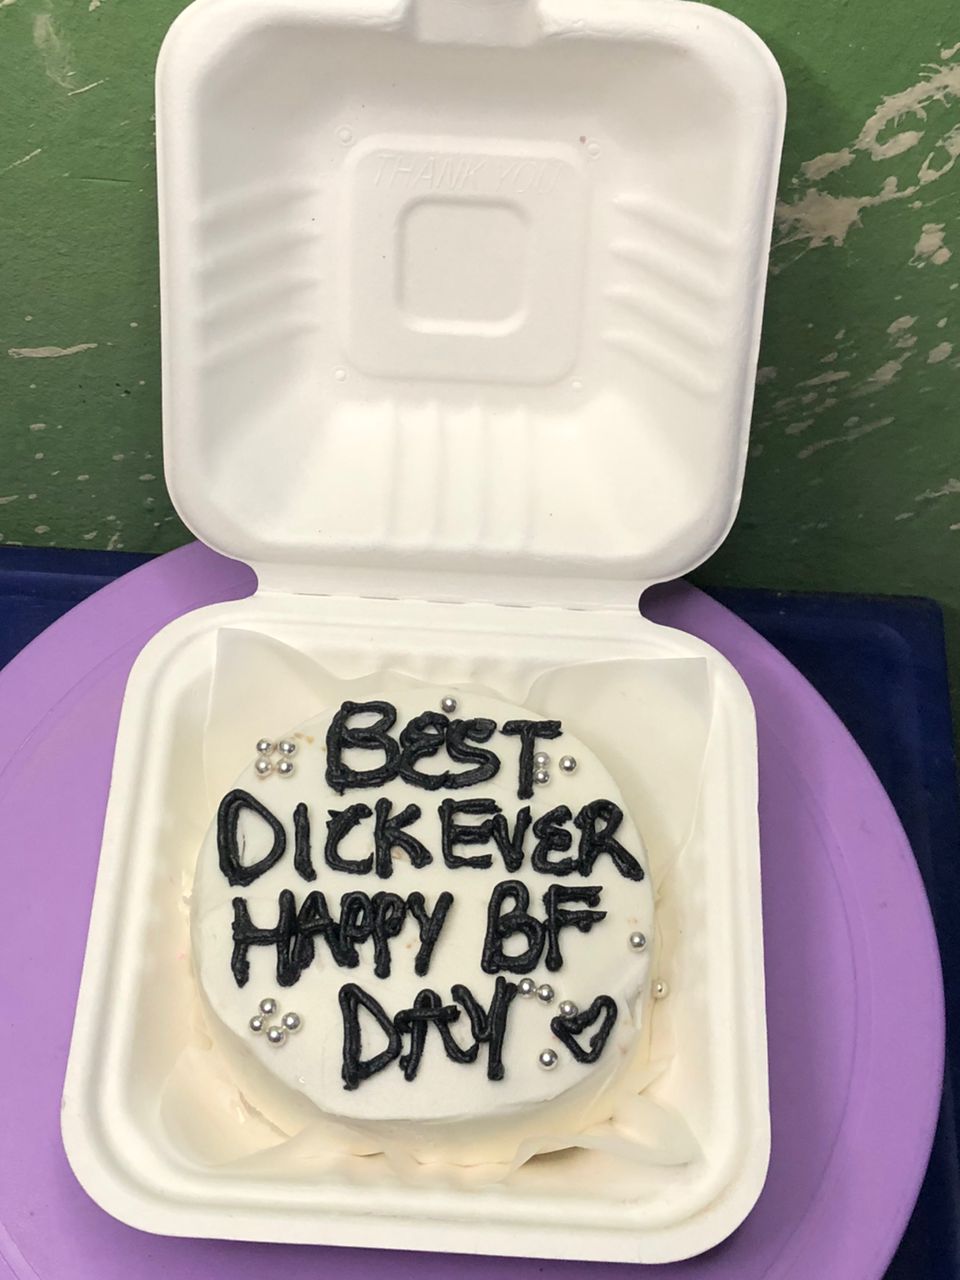 THANK YOU
BEST
DICK EVER
HAPPY BF
DAY